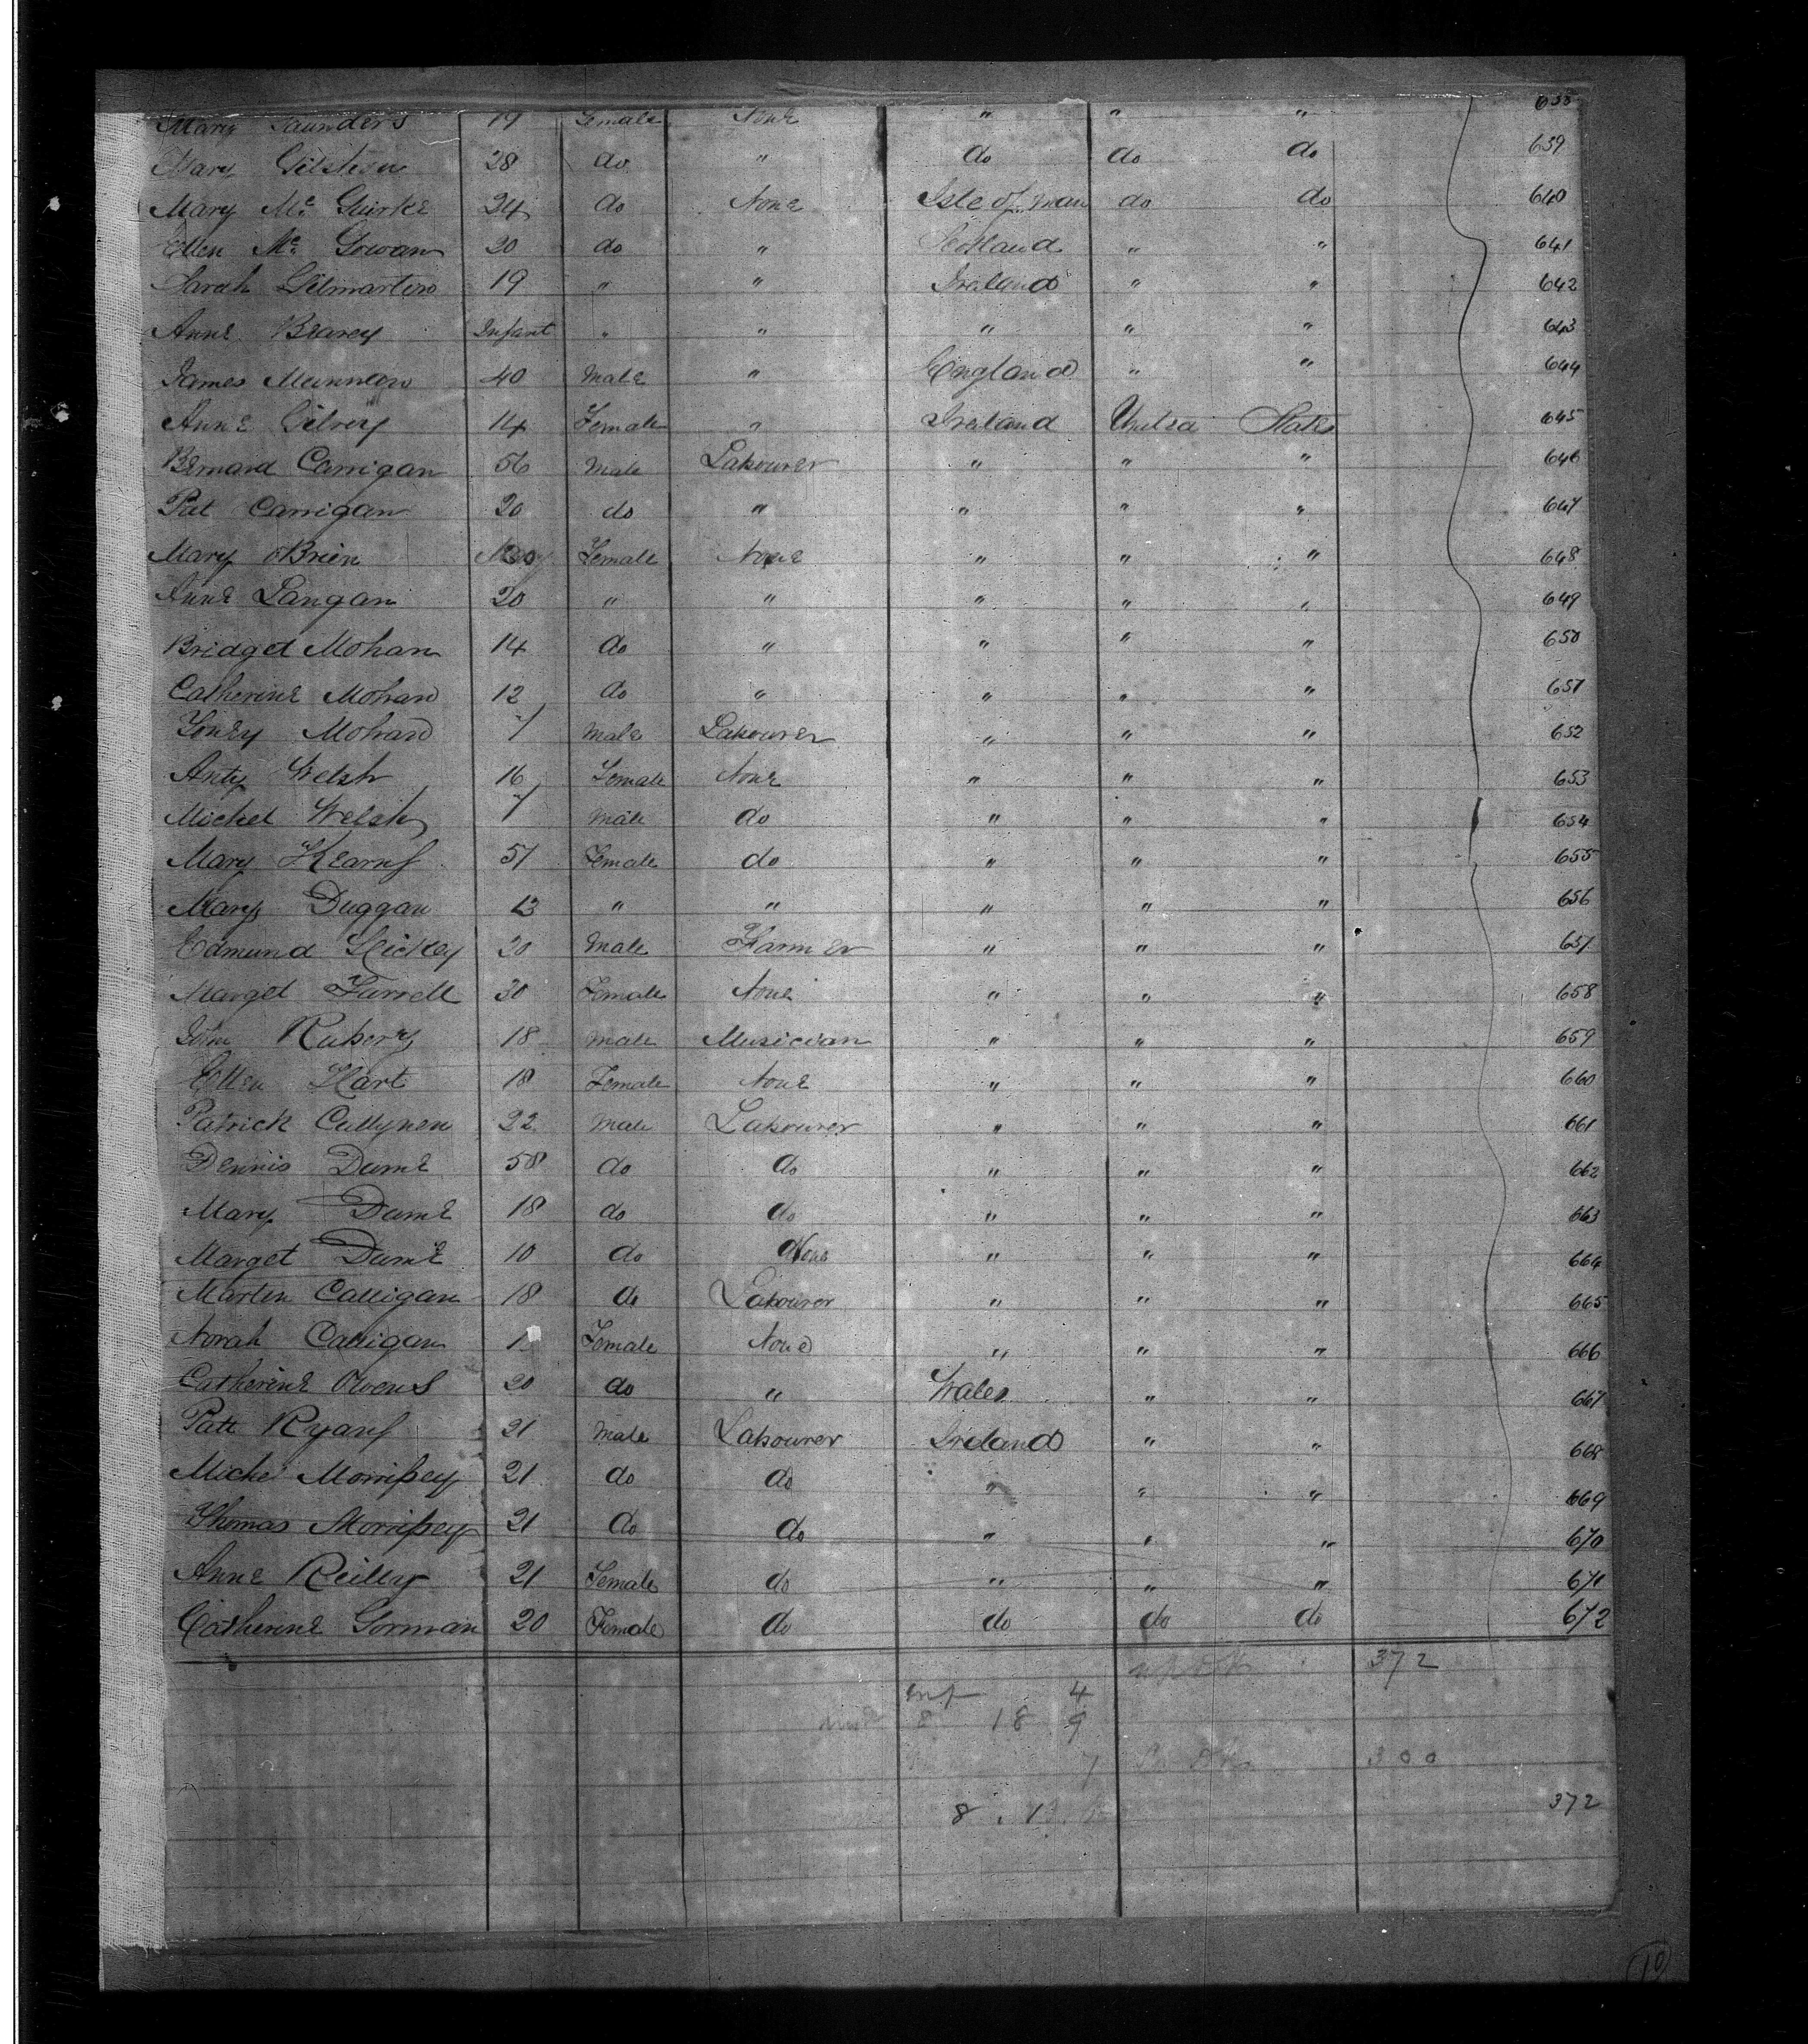 Mary Saunders 19 Female None " " " 638
Mary 28 do " do do do 639
Mary Mc Guirke 24 do None Isle of Man do do 640
Ellen Mc Gowan 20 do " Scotland " " 641
Sarah Gilmartin 19 " " Ireland " " 642
Anne Bearey Infant " " " " " 643
James Munnion 40 Male " England " " 644
Anne Gilroy 14 Female " Ireland United States 645
Bernard Carrigan 56 Male Labourer " " " 646
Pat Carrigan 20 do " " " " 647
Mary OBrien Female None " " " 648
Anne Langan 20 " " " " " 649
Bridget Mohan 14 do " " " " 650
Catherine Mohan 12 do " " " " 651
Mohan 7 Male Labourer " " " 652
Anty Welsh 16 Female None " " " 653
Michel Welsh 7 Male do " " " 654
Mary Kearns 51 Female do " " " 655
Mary Duggan 13 " " " " " 656
Edmund Hickey 20 Male Farmer " " " 657
Marget Farrell 30 Female None " " " 658
John Rubery 18 Male Musician " " " 659
Ellen Hart 18 Female None " " " 660
Patrick Cullynen 22 Male Labourer " " " 661
Dennis Dunne 58 do do " " " 662
Mary Dunne 18 do do " " " 663
Marget Dunne 10 do None " " " 664
Martin Calligan 18 do Labourer " " " 665
Norah Calligan Female None " " " 666
Catherine Owens 20 do " Wales " " 667
Patt Ryans 21 Male Labourer Ireland " " 668
Michel Morrissey 21 do do " " " 669
Thomas Morrissey 21 do do " " " 670
Anne Reilly 21 Female do " " " 671
Catherine Gorman 20 Female do do do do 672
372
Inf 4
8 18 9
7 300
8 372
10